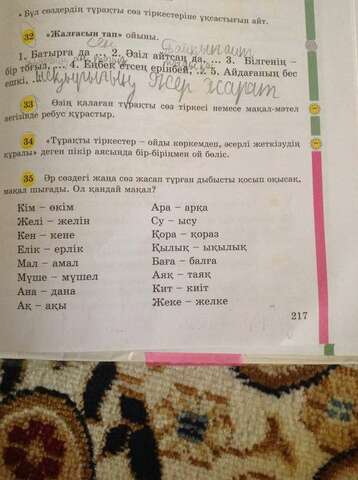 • Бұл сөздердің тұрақты сөз тіркестеріне ұқсастығын айт.
32 «Жалғасын тап» ойыны.
1. Батырға да ... 2. Әділ айтсаң да, ... 3. Білгенің –
бір тоғыз, ... 4. Еңбек етсең ерінбей, ... 5. Айдағаның бес
ешкі,
жер жарат
33 Өзің қалаған тұрақты сөз тіркесі немесе мақал-мәтел
негізінде ребус құрастыр.
34 «Тұрақты тіркестер – ойды көркемдеп, әсерлі жеткізудің
құралы» деген пікір аясында бір-біріңмен ой бөліс.
35 Әр сөздегі жаңа қоса жасап тұрған дыбысты қосып оқысақ,
мақал шығады. Ол қандай мақал?
Кім – өкім
Желі – желін
Кен – кене
Елік – ерлік
Мал – амал
Мүше – мүшел
Ана – дана
Ақ – ақы
Ара – арқа
Су – ысу
Қора – қораз
Қылық – ықылық
Баға – балға
Аяқ – таяқ
Кит – киіт
Жеке – желке
217